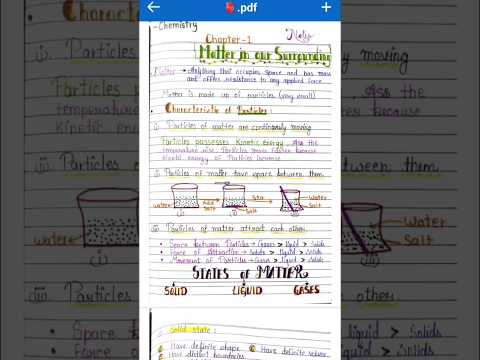 .pdf
- Chemistry
Chapter - 1
Notes
Matter in our Surrounding
Matter → Anything that occupies space and has mass
and offers resistance to any applied force.
Matter is made up of particles (very small)
Characteristic of Particles :
(i) Particles of matter are continuously moving
Particles possesses Kinetic energy. As the
temperature rise Particles move faster because
kinetic energy of Particles increase
(ii) Particles of matter have space between them.
water
Add
Salt
Stir
Water
Salt
(iii) Particles of matter attract each other.
• Space between Particles → Gases > liquid > Solids
• Force of Attraction → Solids > liquid >
• Movement of Particles → Gases > liquid > Solids
STATES OF MATTER
SOLID
LIQUID
GASES
Solid state :
Have definite shape
Have definite volume
Have distinct boundaries
Character
(i). Particles
Particles po
temperature
Kinetic ene
(ii). Particles
water
(iii). Particles
• Space b
• Force o
moving
As the
because
between them.
Water
Salt
other.
liquid > Solids